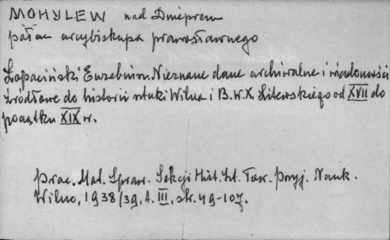 MOHYLEW nad Dnieprem
pałac arcybiskupa prawosławnego
Łopaciński Euzebiusz. Nieznane dane archiwalne i wiadomości
źródłowe do historii sztuki Wilna i B.W.X. Litewskiego od XVII do
początku XIX w.
Prac. Mat. Spraw. Sekcji Hist. Szt. Tow. Przyj. Nauk.
Wilno, 1938/39, t. III, str. 49-107.